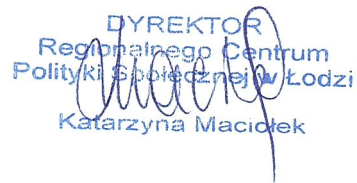 DYREKTOR
Regionalnego Centrum
Polityki Społecznej w Łodzi
Katarzyna Maciołek